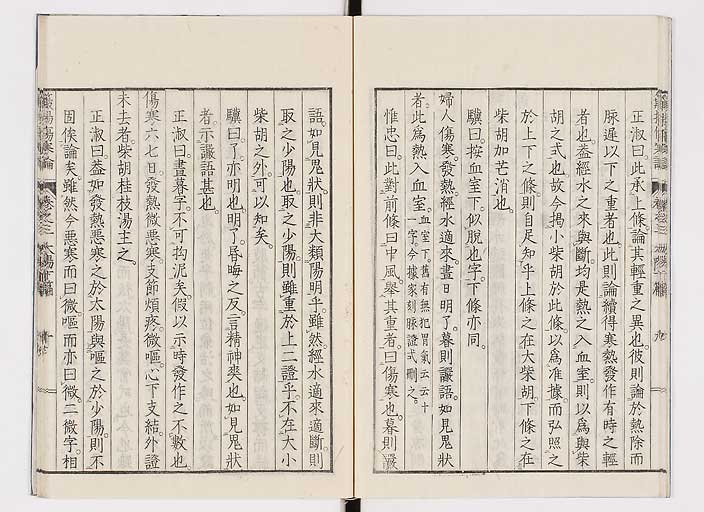 正淑曰。此承上條。論其輕重之異也。彼則論於熱除而
脉遲以下之重者也。此則論續得寒熱發作有時之輕
者也。蓋經水之來與斷。均是熱之入血室。則以爲與柴
胡之式也。故今揭小柴胡於此條。以爲准據。而弘照之
於上下之條。則自足知乎上條之在大柴胡。下條之在
柴胡加芒消也。
驥曰。按血室下。似脫也字。下條亦同。
婦人傷寒。發熱經水適來。晝日明了。暮則讝語。如見鬼狀
者。此爲熱入血室。血室下。舊有無犯胃氣云云十一字。今據家刻脉證式刪之。
惟忠曰。此對前條曰中風。擧其重者。曰傷寒也。暮則讝
語。如見鬼狀。則非大類陽明乎。雖然。經水適來適斷。則
取之少陽也。取之少陽。則雖重於上二證乎。不在大小
柴胡之外。可以知矣。
驥曰。了。亦明也。明了。昏晦之反。言精神爽也。如見鬼狀
者。示讝語甚也。
正淑曰。晝暮字。不可拘泥矣。假以示時發作之不數也。
傷寒六七日。發熱微惡寒。支節煩疼。微嘔。心下支結。外證
未去者。柴胡桂枝湯主之。
正淑曰。蓋如發熱惡寒之於太陽。與嘔之於少陽。則不
固俟論矣。雖然今惡寒而曰微。嘔而亦曰微。二微字。相